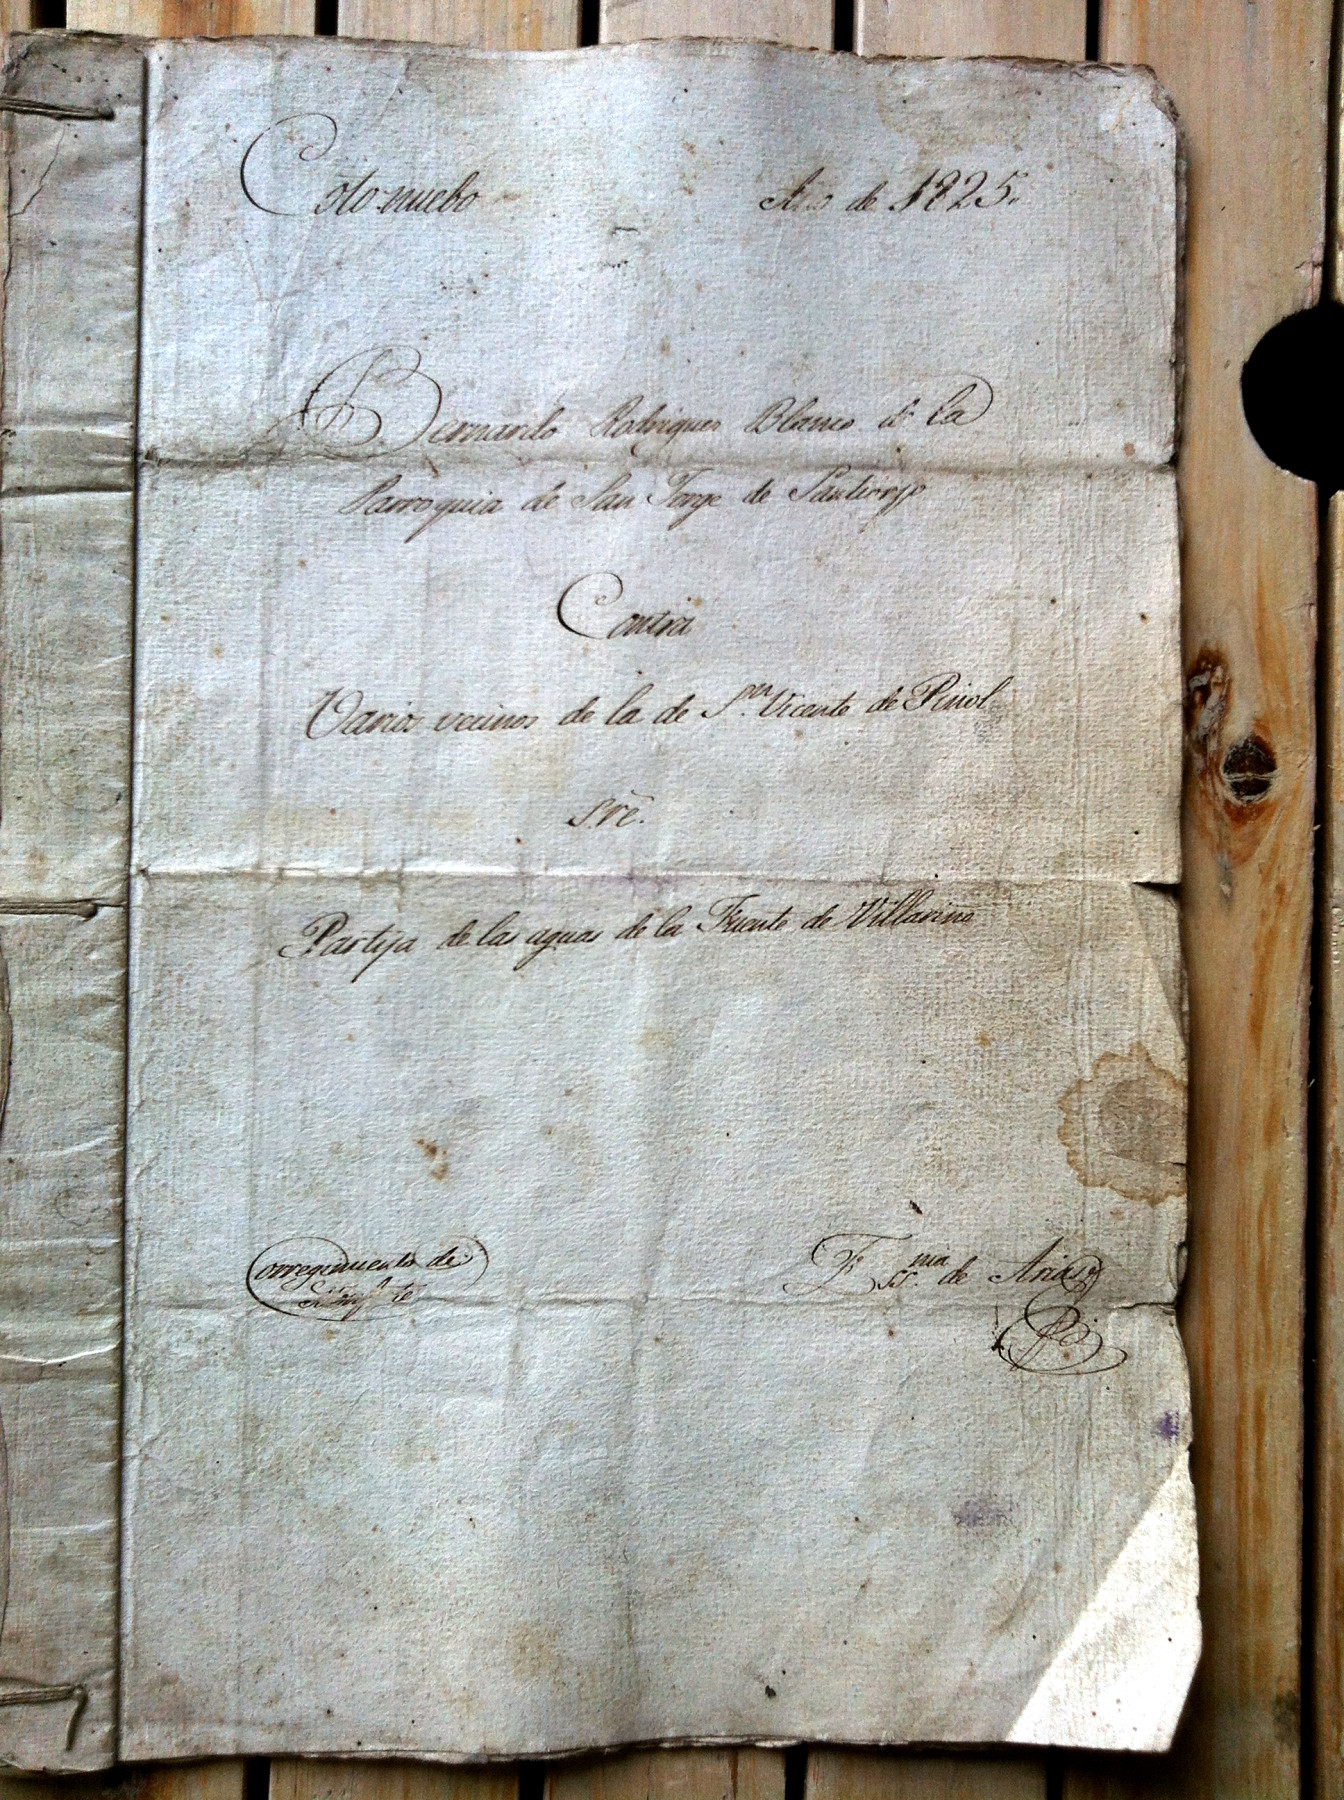 Coto nuebo Año de 1825.
Bernardo Rodriguez Blanco de la
Parroquia de San Jorge de Santiorjo
Contra
Varios vecinos de la de Sn. Vicente de Pinol
sre.
Partija de las aguas de la Fuente de Villarino
Corregimiento de
Essnia. de Arias